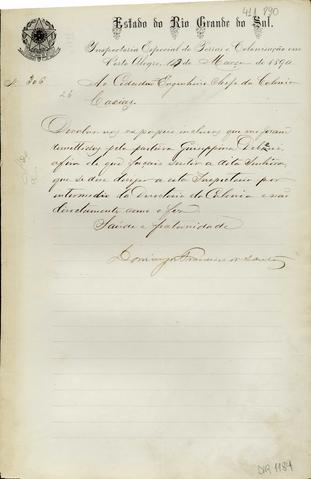 411 890
Estado do Rio Grande do Sul.
Inspectoria Especial de Terras e Colonisação em
Porto Alegre, 17 de Março de 1890
Nº 306
Ao Cidadão Engenheiro Chefe da Colonia
26 Caxias
Devolvo vos os papeis inclusos que me foram
remettidos pela parteira Giuseppina
afim de que façais sentir a dita Senhora,
que se deve dirigir a esta Inspectoria por
intermedio da Directoria da Colonia e não
directamente como o fez.
Saúde e fraternidade
Domingos Francisco dos Santos
DIR 1184